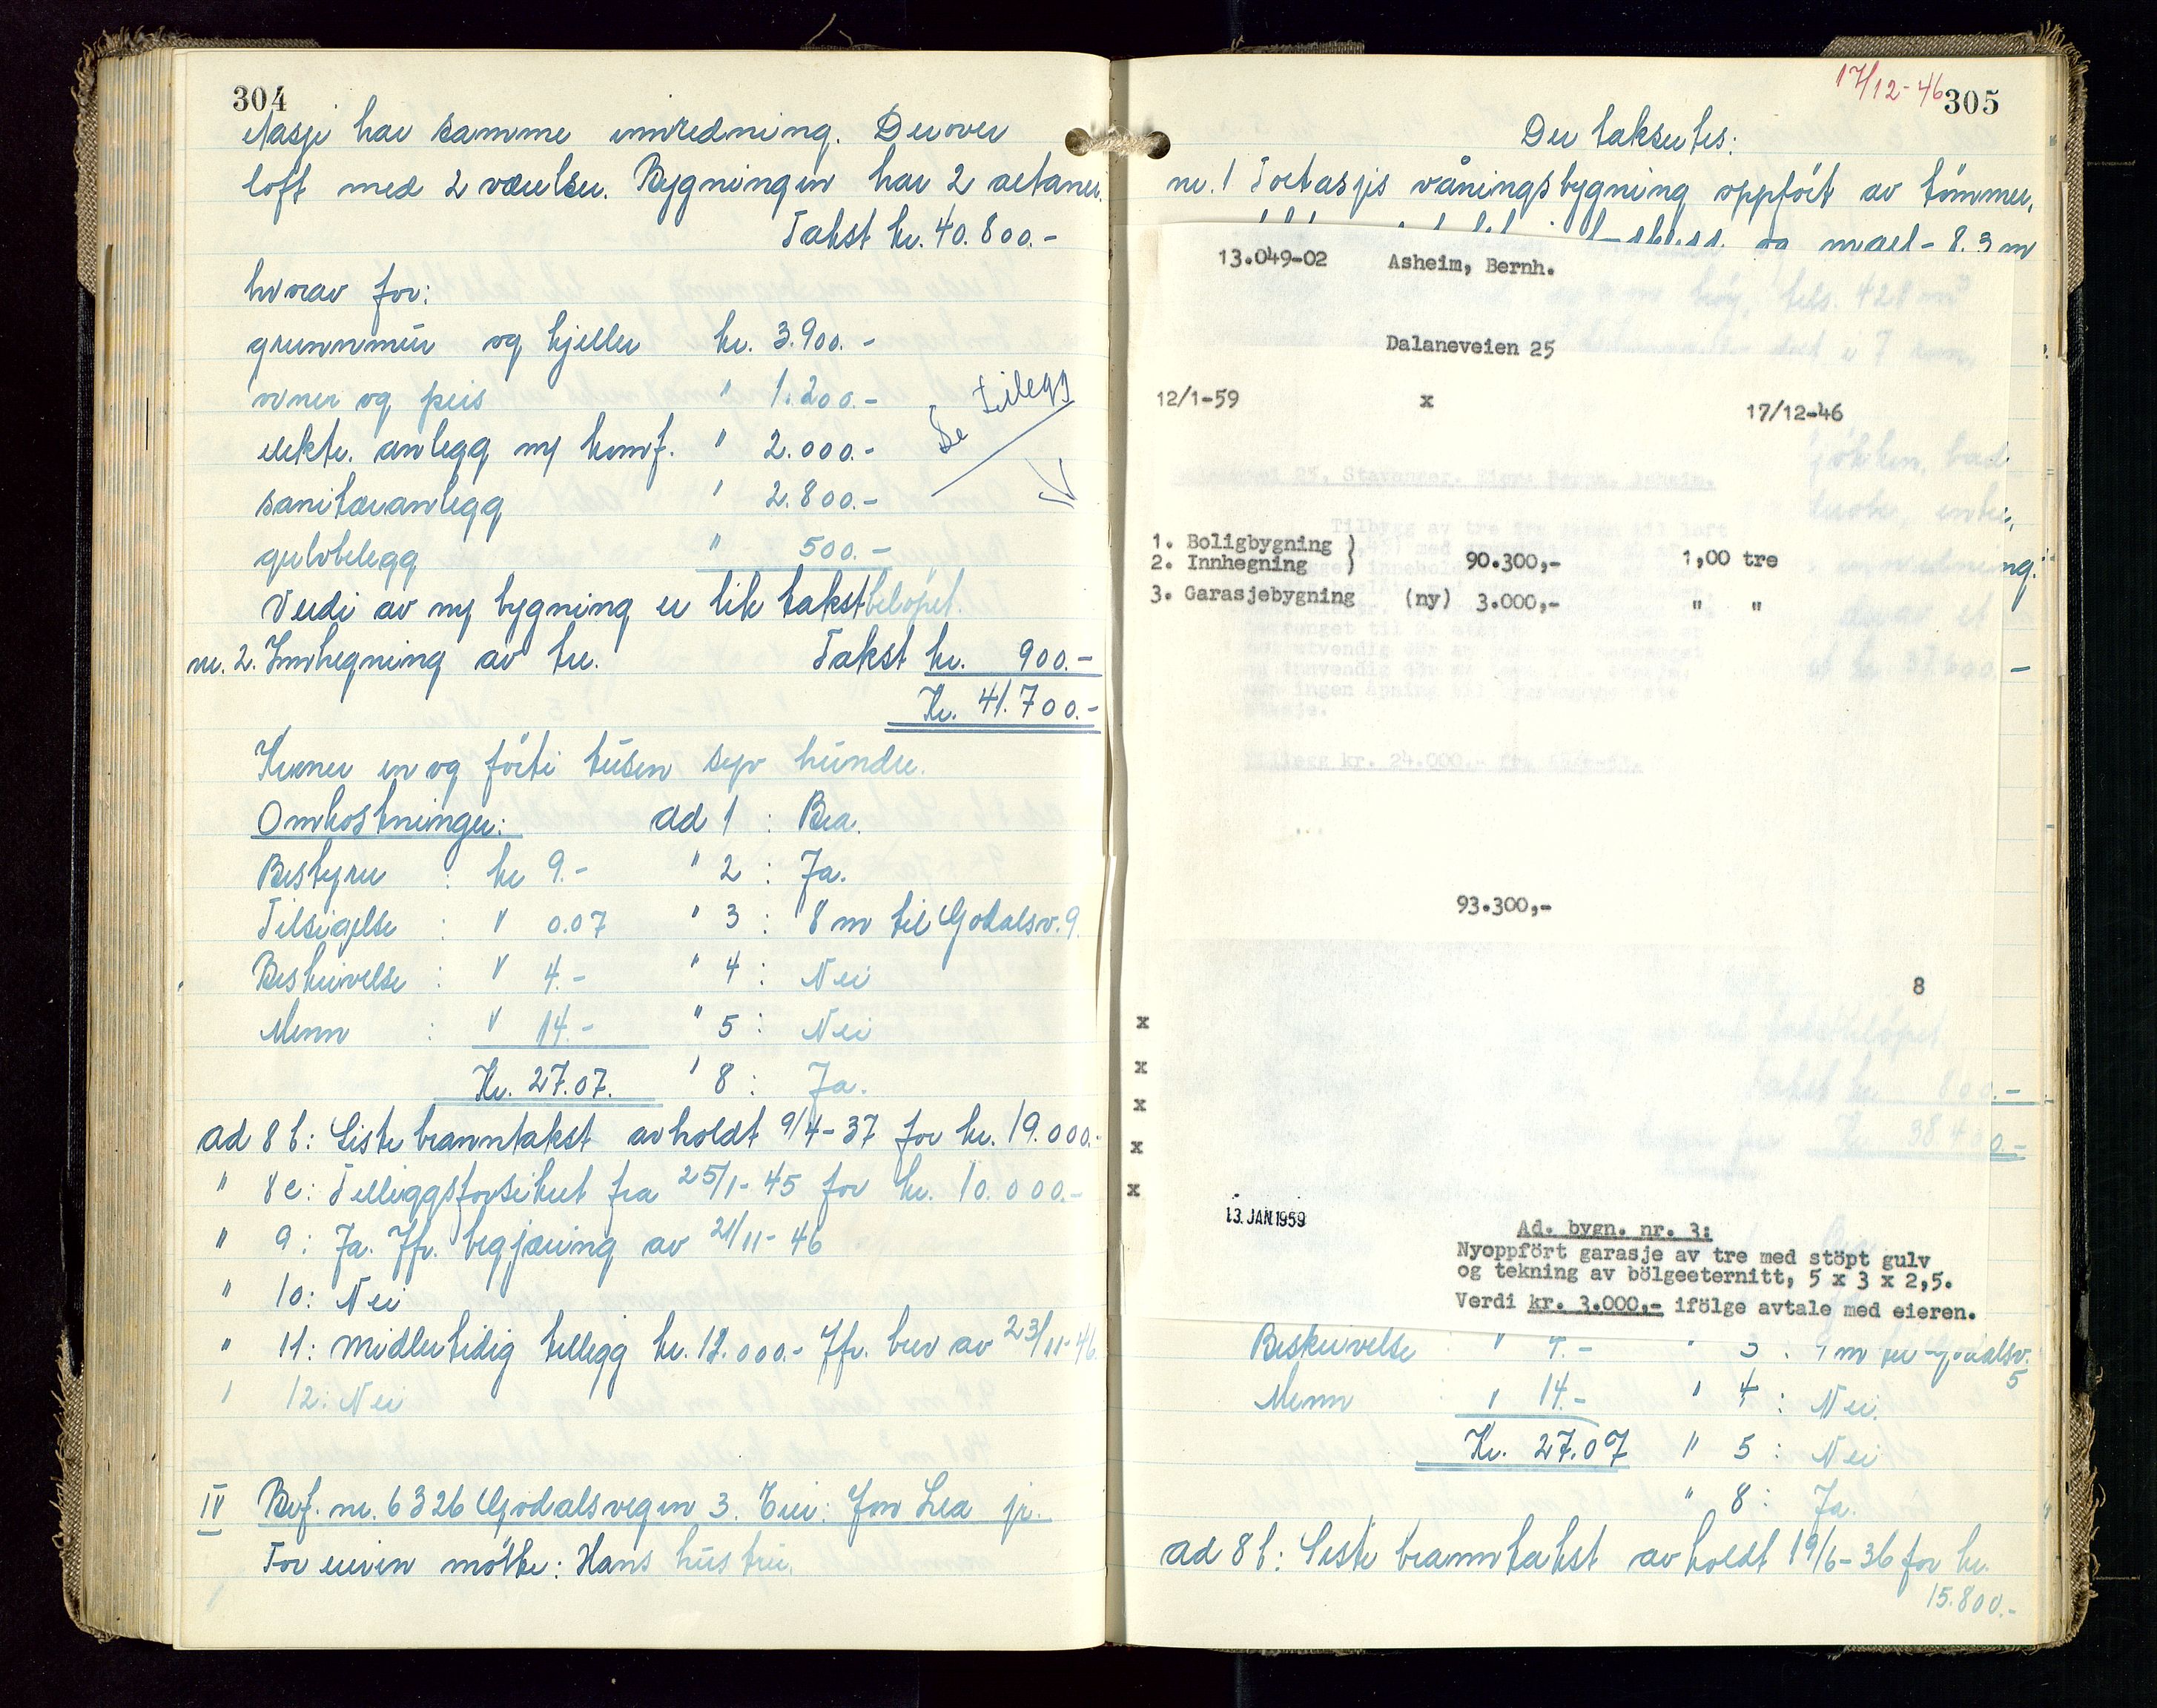 304
etasje har samme innredning. Derover
loft med 2 værelser. Bygningen har 2 altaner.
Takst kr. 40.800.-
hvorav for:
grunnmur og kjeller kr. 3.900.-
ovner og peis " 1.200.-
elektr. anlegg m/ komf. " 2.000.-
sanitæranlegg " 2.800.-
gulvbelegg " 500.-
Se tillegg
Verdi av ny bygning er lik takstbeløpet.
nr. 2. Innhegning av tre. Takst kr. 900.-
Kr. 41.700.-
Kroner en og førti tusen syv hundre.
Omkostninger: ad 1 : Bra.
Bestyrer : kr 9.- " 2 : Ja.
Tilsigelse : " 0.07 " 3 : 8 m til Godalsv. 9.
Beskrivelse : " 4.- " 4 : Nei
Menn : " 14.- " 5 : Nei
Kr. 27.07. " 8 : Ja.
ad 8 b: Siste branntakst avholdt 9/4-37 for kr. 19.000.-
" 8 c: Tilleggsforsikret fra 25/1-45 for kr. 10.000.-
" 9 : Ja. Jfr. begjæring av 21/11-46
" 10: Nei
" 11: Midlertidig tillegg kr. 12.000.- Jfr. brev av 23/11-46.
" 12: Nei
IV Bef. nr. 6326 Godalsvegen 3. Eier: Jon Lea jr.
For eieren møtte: Hans hustru.
17/12-46 305
Der takseres:
nr. 1 Toetasjes våningsbygning oppført av tømmer,
og måler 8.3 m
13.049-02 Asheim, Bernh.
Dalaneveien 25
12/1-59 x 17/12-46
1. Boligbygning )
2. Innhegning ) 90.300,- 1,00 tre
3. Garasjebygning (ny) 3.000,- " "
93.300,-
8
x
x
x
x
x
13. JAN. 1959
Ad. bygn. nr. 3:
Nyoppført garasje av tre med støpt gulv
og tekning av bølgeeternitt, 5 x 3 x 2,5.
Verdi kr. 3.000,- ifølge avtale med eieren.
Beskrivelse : " 4.- " 3 : 9 m til Godalsv. 5
Menn : " 14.- " 4 : Nei.
Kr. 27.07 " 5 : Nei
" 8 : Ja.
ad 8 b: Siste branntakst avholdt 19/6-36 for kr.
15.800.-